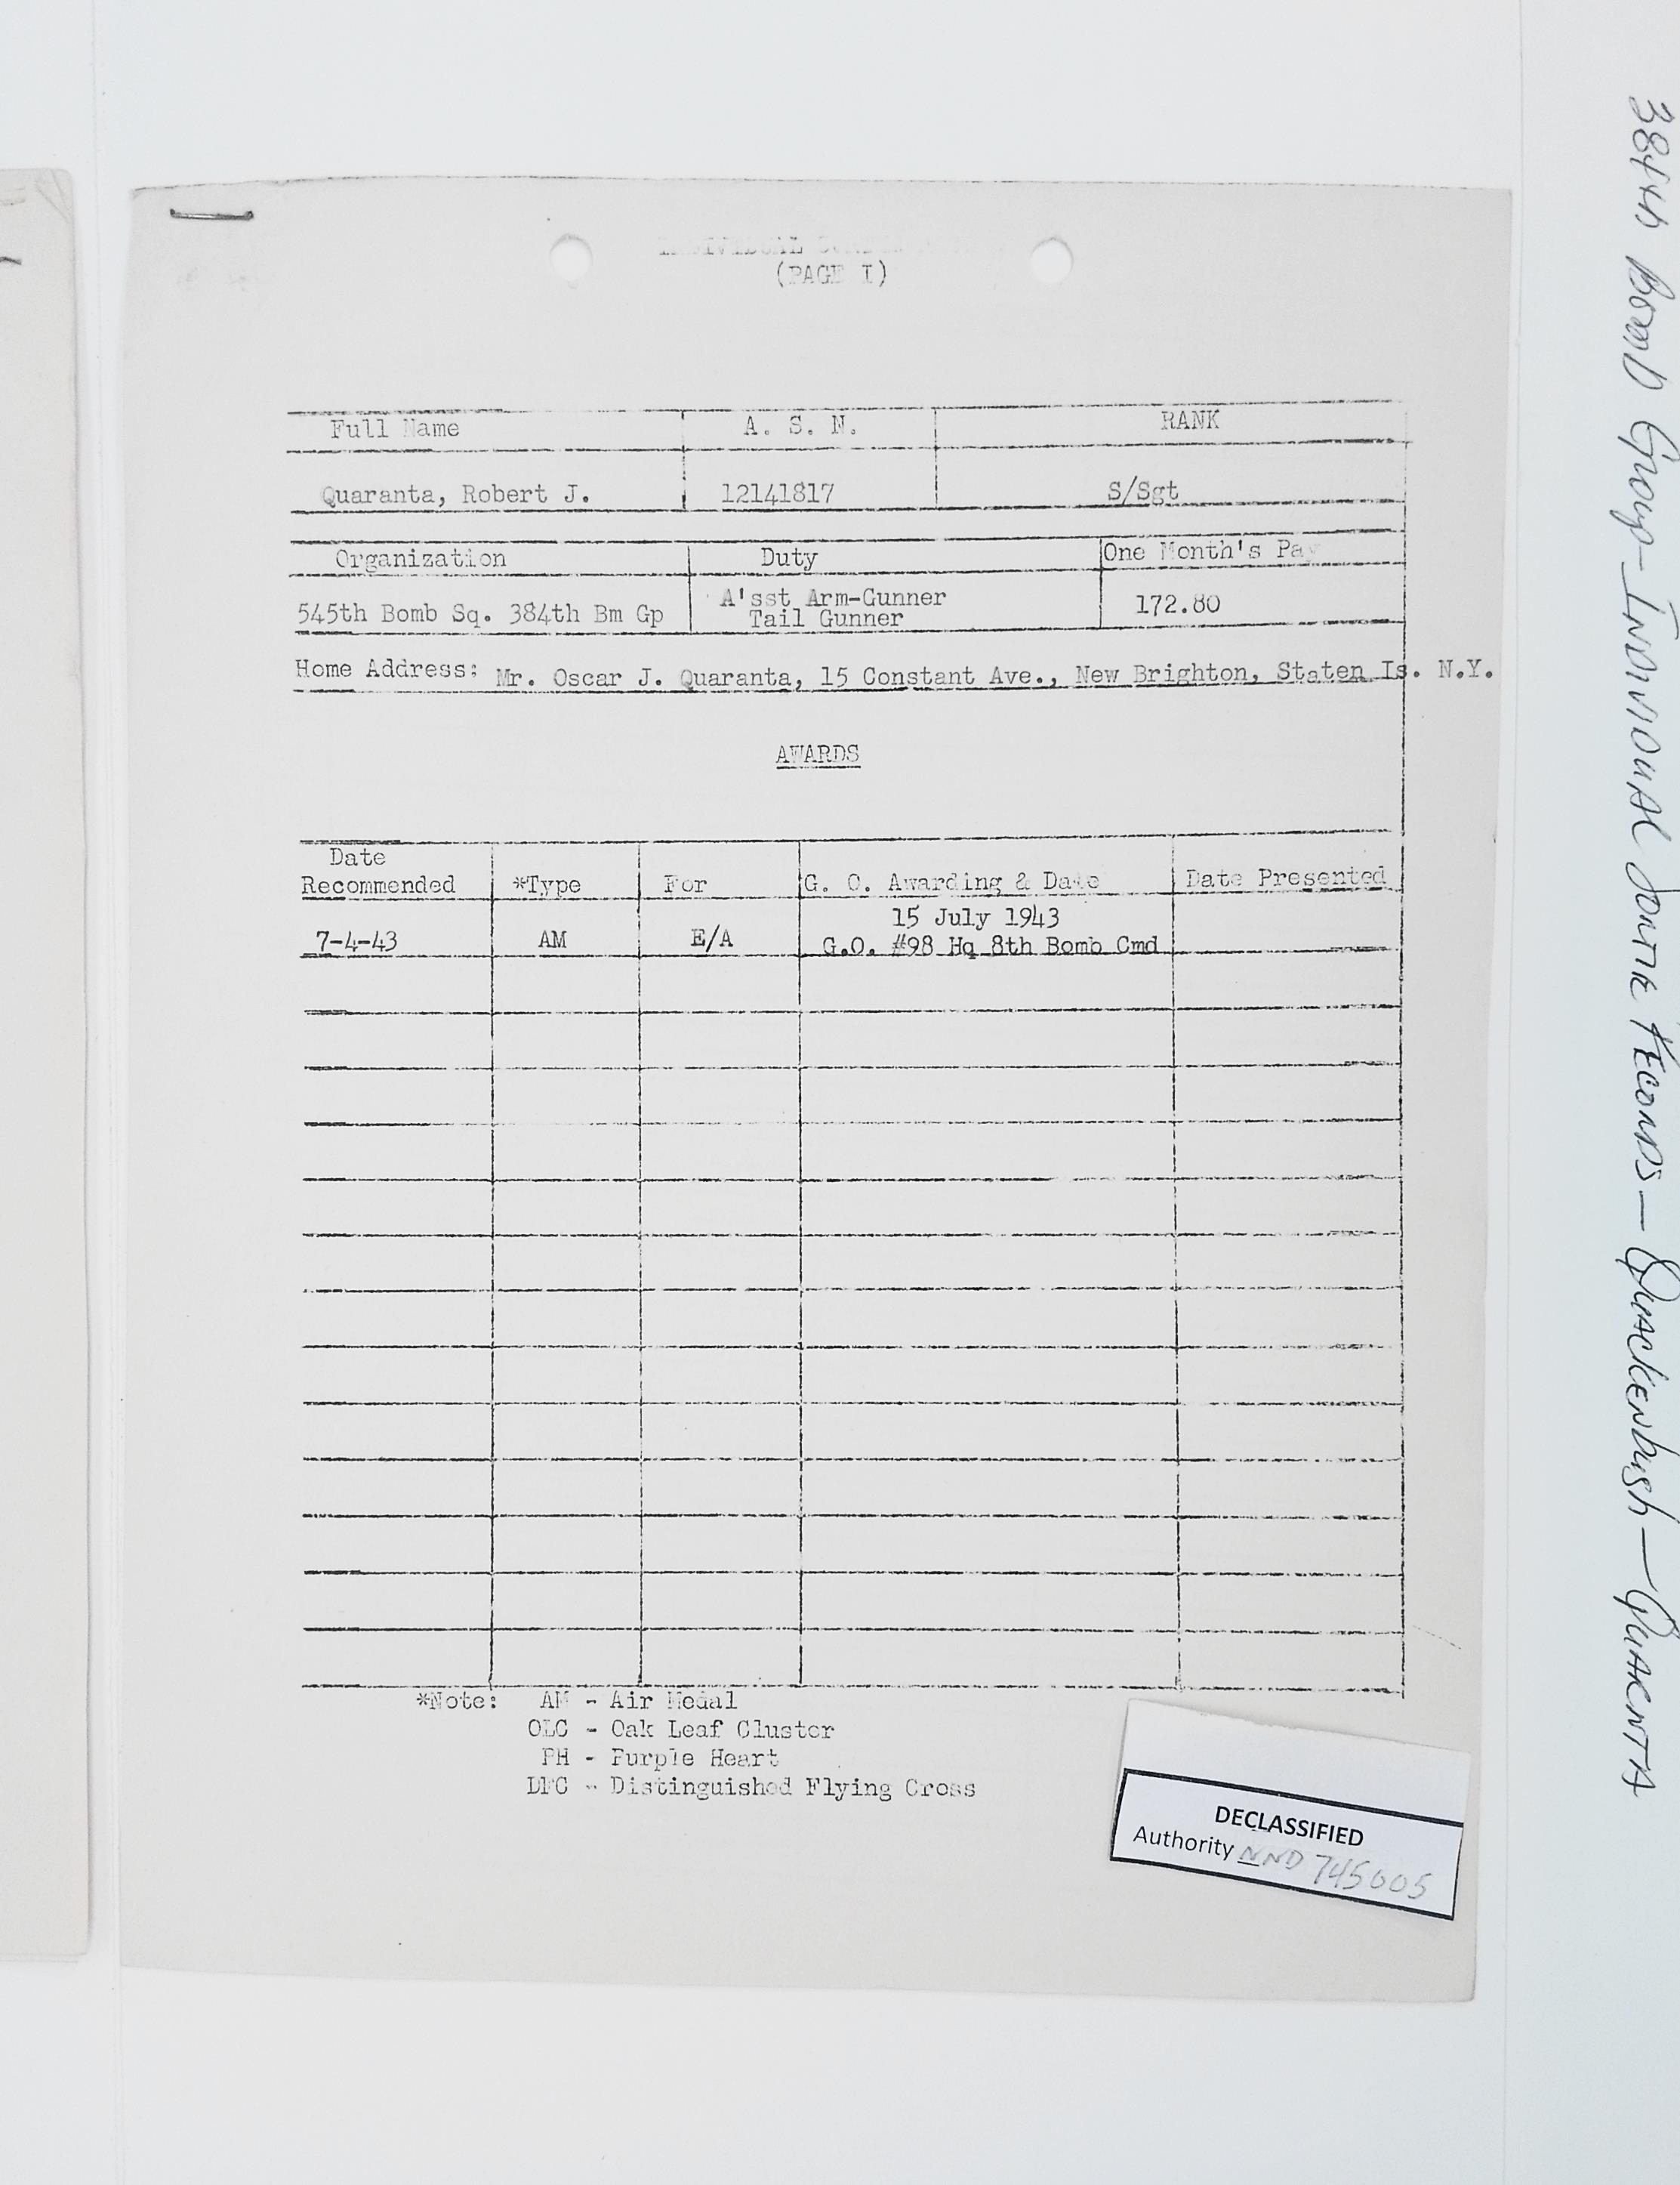 INDIVIDUAL
(PAGE I)
Full Name A. S. N. RANK
Quaranta, Robert J. 12141817 S/Sgt
Organization Duty One Month's Pay
545th Bomb Sq. 384th Bm Gp A'sst Arm-Gunner 172.80
Tail Gunner
Home Address: Mr. Oscar J. Quaranta, 15 Constant Ave., New Brighton, Staten Is. N.Y.
AWARDS
Date
Recommended *Type For G. O. Awarding & Date Date Presented
15 July 1943
7-4-43 AM E/A G.O. #98 Hq 8th Bomb Cmd
*Note: AM - Air Medal
OLC - Oak Leaf Cluster
PH - Purple Heart
DFC - Distinguished Flying Cross
DECLASSIFIED
Authority NND 745005
384th Bomb Group-Individual Sortie Records-Quackenbush-Quarenta